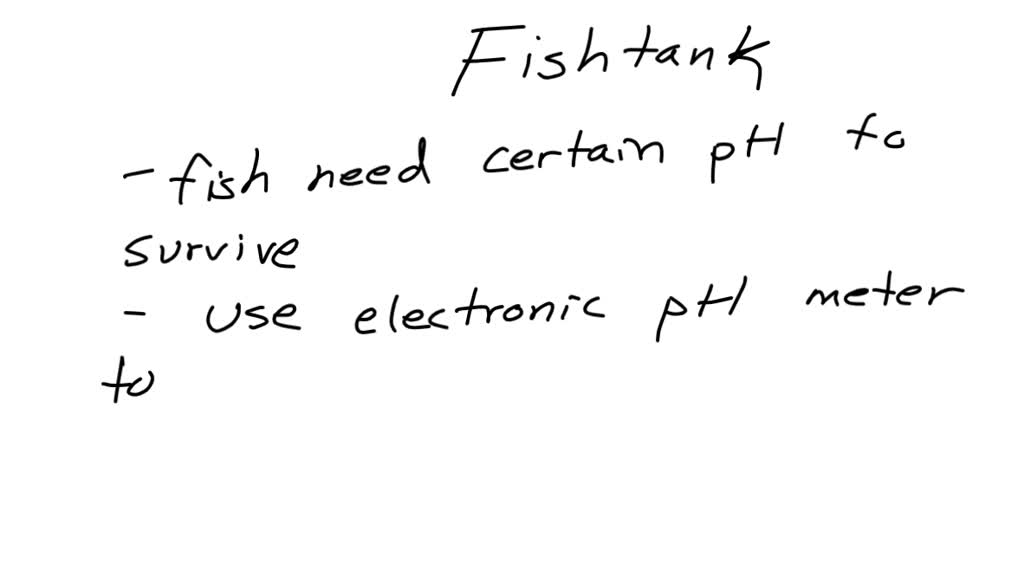 Fishtank
- fish need certain pH to
survive
- use electronic pH meter
to